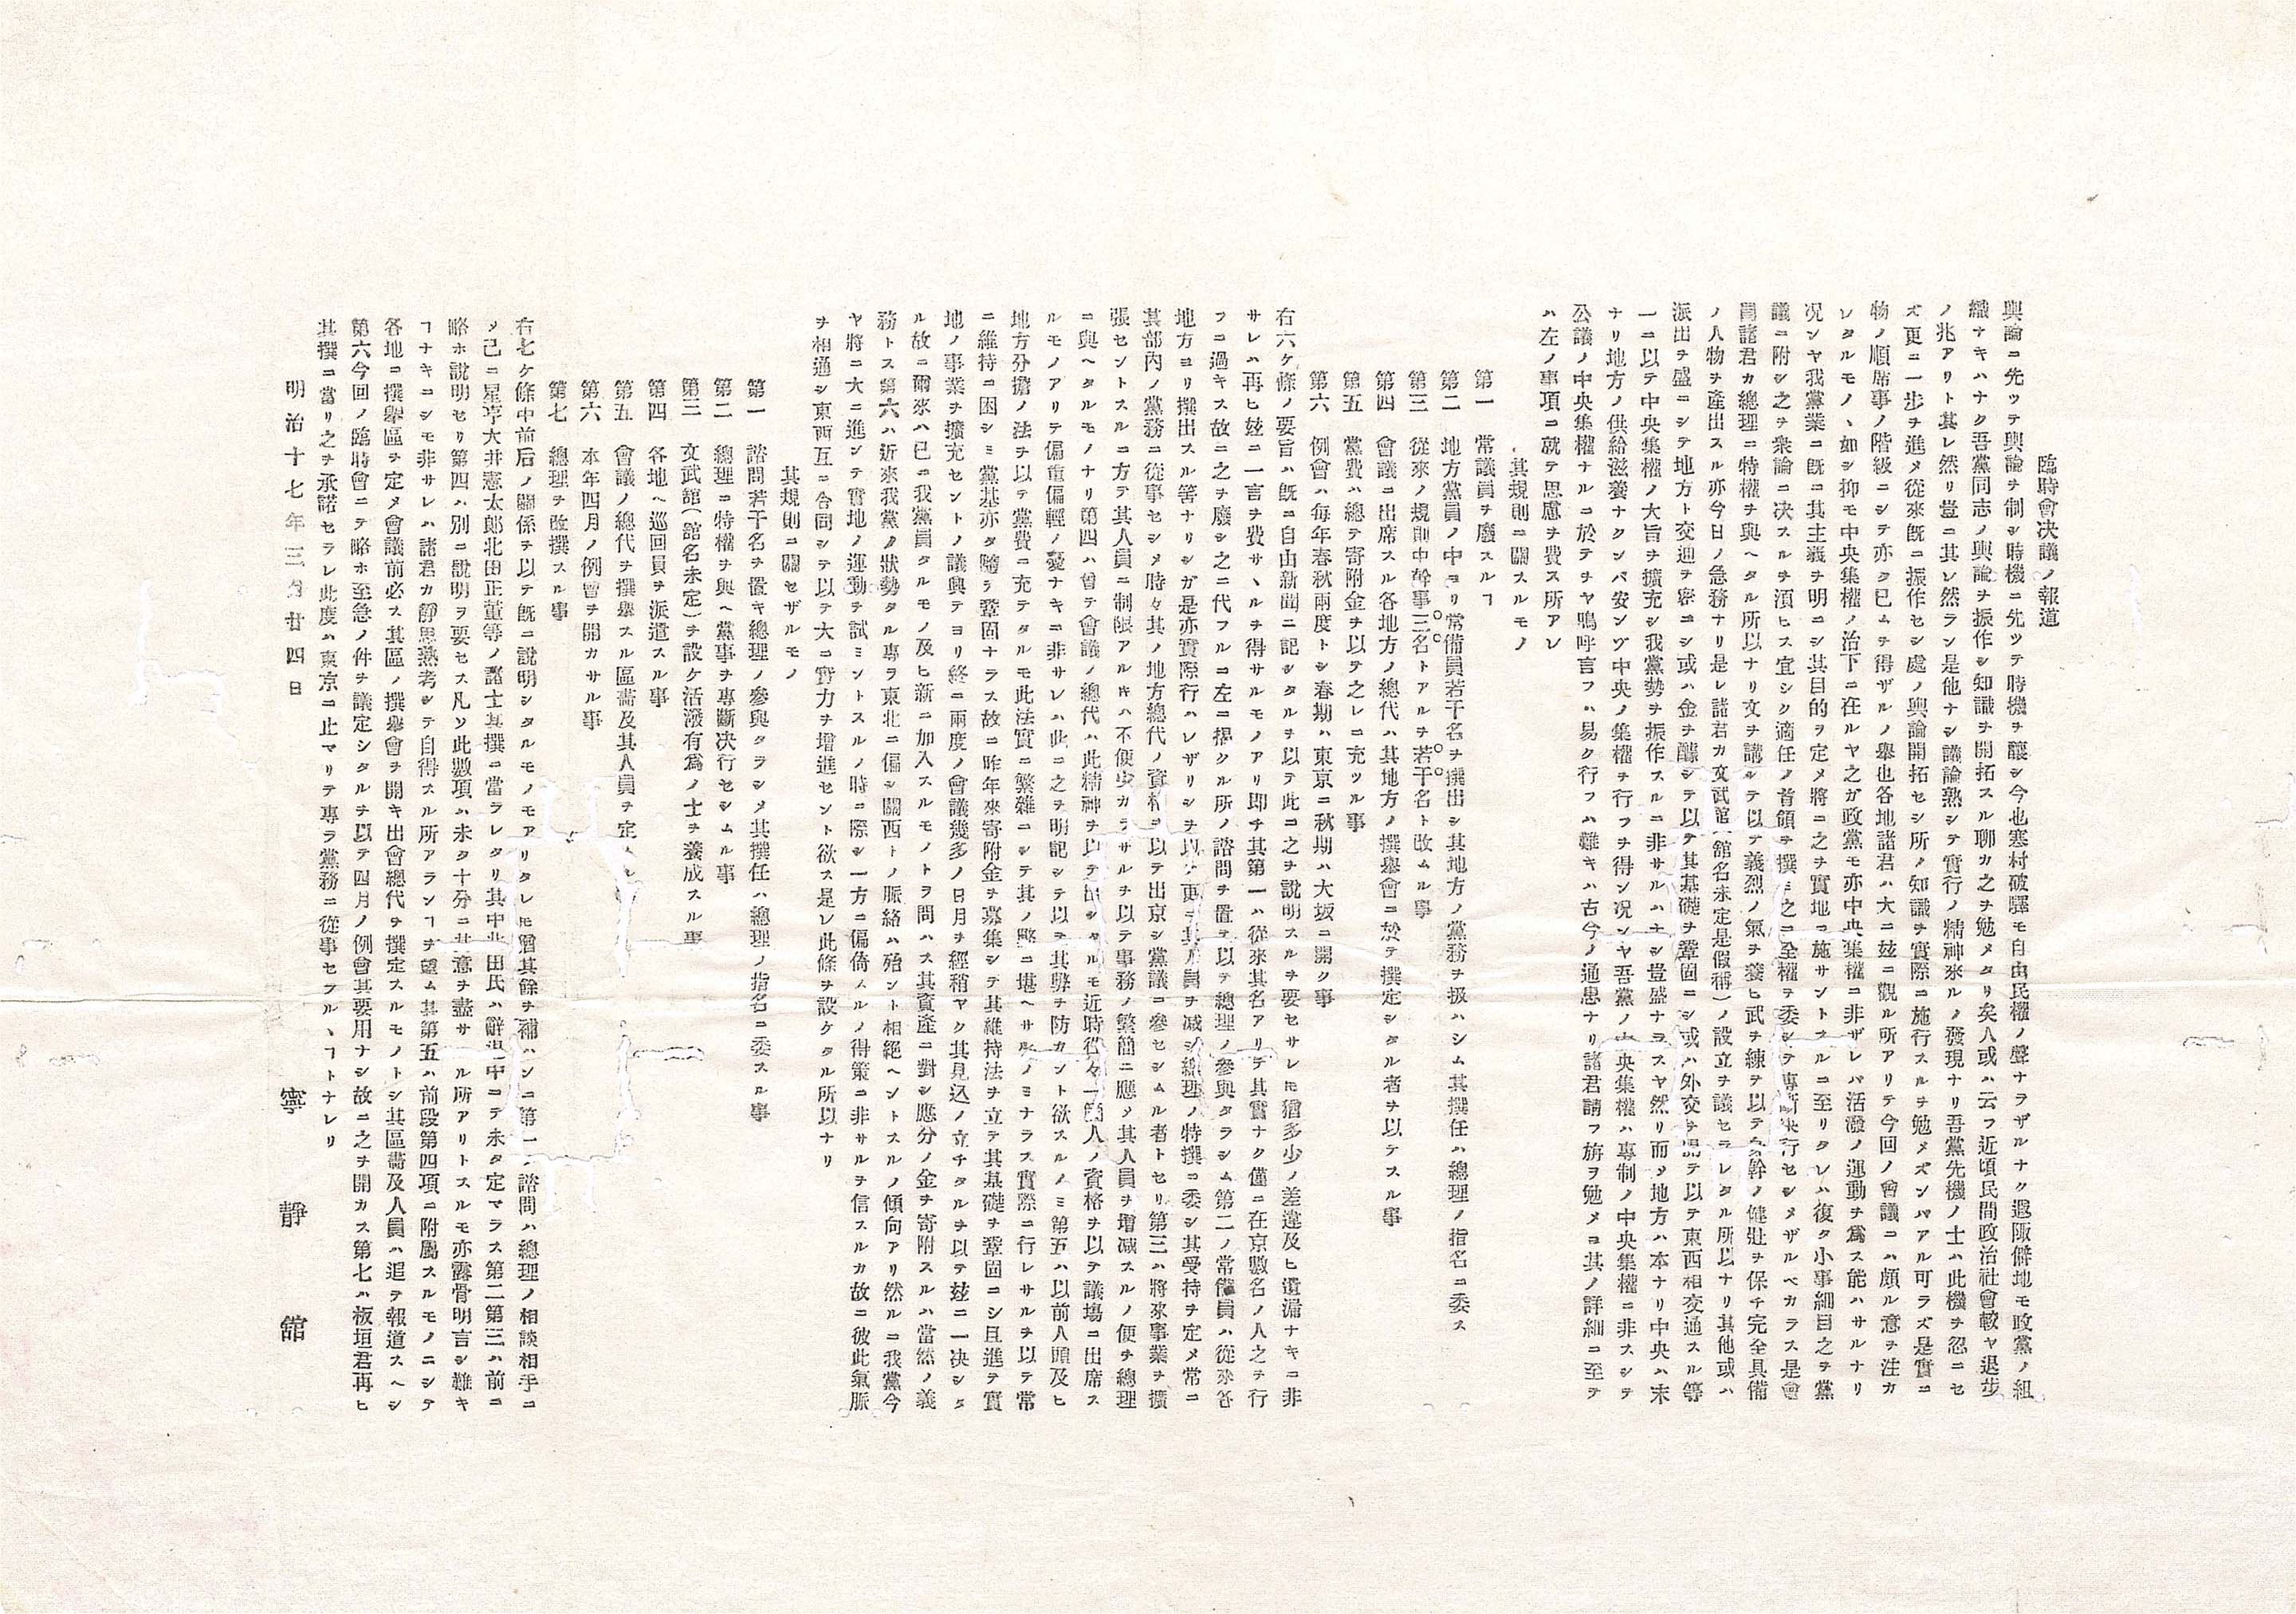 臨時會决議ノ報道
輿論ニ先ツテ輿論ヲ制シ時機ニ先ツテ時機ヲ釀シ今也寒村破驛モ自由民權ノ聲ナラザルナク遐陬僻地モ政黨ノ組
織ナキハナク吾黨同志ノ輿論ヲ振作シ知識ヲ開拓スル聊カ之ヲ勉メタリ矣人或ハ云フ近頃民間政治社會較ヤ退歩
ノ兆アリト其レ然リ豈ニ其レ然ラン是他ナシ議論熟シテ實行ノ精神來ルノ發現ナリ吾黨先機ノ士ハ此機ヲ忍ニセ
ズ更ニ一歩ヲ進メ從來既ニ振作セシ處ノ輿論開拓セシ所ノ知識ヲ實際ニ施行スルヲ勉メズンバアル可ラズ是實ニ
物ノ順席事ノ階級ニシテ亦タ已ムヲ得ザルノ擧也各地諸君ハ大ニ玆ニ觀ル所アリテ今回ノ會議ニハ頗ル意ヲ注カ
レタルモノヽ如シ抑モ中央集權ノ治下ニ在ルヤ之ガ政黨モ亦中央集權ニ非ザレバ活潑ノ運動ヲ爲ス能ハサルナリ
况ンヤ我黨業ニ既ニ其主義ヲ明ニシ其目的ヲ定メ將ニ之ヲ實地ニ施サントスルニ至リタレハ復タ小事細目之ヲ黨
議ニ附シ之ヲ衆論ニ决スルヲ須ヒス宜シク適任ノ首領ヲ撰ミ之ニ全權ヲ委シテ專斷决行セシメザルベカラス是會
員諸君カ總理ニ特權ヲ與ヘタル所以ナリ文ヲ講ルテ以テ義烈ノ氣ヲ養ヒ武ヲ練テ以テ身幹ノ健壯ヲ保チ完全具備
ノ人物ヲ產出スル亦今日ノ急務ナリ是レ諸君カ文武館(館名未定是假稱)ノ設立ヲ議セラレタル所以ナリ其他或ハ
派出ヲ盛ニシテ地方ト交通ヲ密ニシ或ハ金ヲ醵シテ以テ其基礎ヲ鞏固ニシ或ハ外交ヲ以テ東西相交通スル等
一ニ以テ中央集權ノ大旨ヲ擴充シ我黨勢ヲ振作スルニ非サルハナシ豈盛ナラスヤ然リ而メ地方ハ本ナリ中央ハ末
ナリ地方ノ供給滋養ナクンバ安ンゾ中央ノ集權ヲ行フヲ得ン况ンヤ吾黨ノ中央集權ハ專制ノ中央集權ニ非スシテ
公議ノ中央集權ナルニ於テヲヤ嗚呼言フハ易ク行フハ難キハ古今ノ通患ナリ諸君請フ旃ヲ勉メヨ其ノ詳細ニ至テ
ハ左ノ事項ニ就テ思慮ヲ費ス所アレ
其規則ニ關スルモノ
第一　常議員ヲ廢スルヿ
第二　地方黨員ノ中ヨリ常備員若干名ヲ撰出シ其地方ノ黨務ヲ扱ハシム其撰任ハ總理ノ指名ニ委ス
第三　從來ノ規則中幹事三名トアルヲ若干名ト改ムル事
第四　會議ニ出席スル各地方ノ總代ハ其地方ノ撰擧會ニ於テ撰定シタル者ヲ以テスル事
第五　黨費ハ總テ寄附金ヲ以テ之レニ充ツル事
第六　例會ハ每年春秋兩度トシ春期ハ東京ニ秋期ハ大坂ニ開ク事
右六ケ條ノ要旨ハ既ニ自由新聞ニ記シタルヲ以テ此ニ之ヲ說明スルヲ要セサレ𪜈猶多少ノ差違及ヒ遺漏ナキニ非
サレハ再ヒ玆ニ一言ヲ費サヽルヲ得サルモノアリ即チ其第一ハ從來其名アリテ其實ナク僅ニ在京數名ノ人之ヲ行
フニ過キス故ニ之ヲ廢シ之ニ代フルニ左ニ揭クル所ノ諮問ヲ置テ以テ總理ノ參與タラシム第二ノ常備員ハ從來各
地方ヨリ撰出スル筈ナリシガ是亦實際行ハレザリシヲ以テ更ニ其人員ヲ减シ總理ノ特撰ニ委シ其受持ヲ定メ常ニ
其部內ノ黨務ニ從事セシメ時々其ノ地方總代ノ資格ヲ以テ出京シ黨議ニ參セシムル者トセリ第三ハ將來事業ヲ擴
張セントスルニ方テ其人員ニ制限アル𪜈ハ不便少カラサルヲ以テ事務ノ繁簡ニ應メ其人員ヲ增减スルノ便ヲ總理
ニ與ヘタルモノナリ第四ハ曾テ會議ノ總代ハ此精神ヲ以テ出シタルモ近時往々一箇人ノ資格ヲ以テ議塲ニ出席ス
ルモノアリテ偏重偏輕ノ憂ナキニ非サレハ此ニ之ヲ明記シテ以テ其弊ヲ防カント欲スルノミ第五ハ以前人頭及ヒ
地方分擔ノ法ヲ以テ黨費ニ充テタルモ此法實ニ繁雜ニシテ其ノ弊ニ堪ヘサルノミナラス實際ニ行レサルヲ以テ常
ニ維持ニ困シミ黨基亦タ隨ヲ鞏固ナラス故ニ昨年來寄附金ヲ募集シテ其維持法ヲ立テ其基礎ヲ鞏固ニシ且進テ實
地ノ事業ヲ擴充セントノ議興テヨリ終ニ兩度ノ會議幾多ノ日月ヲ經稍ヤク其見込ノ立チタルヲ以テ玆ニ一决シタ
ル故ニ爾來ハ已ニ我黨員タルモノ及ヒ新ニ加入スルモノトヲ問ハス其資產ニ對シ應分ノ金ヲ寄附スルハ當然ノ義
務トス第六ハ近來我黨ノ狀勢タル專ヲ東北ニ偏シ關西トノ脈絡ハ殆ント相絕ヘントスルノ傾向アリ然ルニ我黨今
ヤ將ニ大ニ進ンテ實地ノ運動ヲ試ミントスルノ時ニ際シ一方ニ偏倚スルノ得策ニ非サルヲ信スルカ故ニ彼此氣脈
ヲ相通シ東西互ニ合同シテ以テ大ニ實力ヲ增進セント欲ス是レ此條ヲ設ケタル所以ナリ
其規則ニ關セザルモノ
第一　諮問若干名ヲ置キ總理ノ參與タラシメ其撰任ハ總理ノ指名ニ委スル事
第二　總理ニ特權ヲ與ヘ黨事ヲ專斷决行セシムル事
第三　文武館(館名未定)ヲ設ケ活潑有爲ノ士ヲ養成スル事
第四　各地ヘ巡回員ヲ派遣スル事
第五　會議ノ總代ヲ撰擧スル區畫及其人員ヲ定
第六　本年四月ノ例會ヲ開カサル事
第七　總理ヲ改撰スル事
右七ケ條中前后ノ關係ヲ以テ既ニ說明シタルモノモアリタレ𪜈曾其餘ヲ補ハンニ第一ノ諮問ハ總理ノ相談相手ニ
メ已ニ星亨大井憲太郎北田正董等ノ諸士其撰ニ當ラレタリ其中北田氏ハ辭退中ニテ未タ定マラス第二第三ハ前ニ
略ホ說明セリ第四ハ別ニ說明ヲ要セス凡ソ此數項ハ未タ十分ニ其意ヲ盡サル所アリトスルモ亦露骨明言シ難キ
ヿナキニシモ非サレハ諸君カ靜思熟考シテ自得スル所アランヿヲ望ム其第五ハ前段第四項ニ附屬スルモノニシテ
各地ニ撰擧區ヲ定メ會議前必ス其區ノ撰擧會ヲ開キ出會總代ヲ撰定スルモノトシ其區畫及人員ハ追テ報道スヘシ
第六今回ノ臨時會ニテ略ホ至急ノ件ヲ議定シタルヲ以テ四月ノ例會其要用ナシ故ニ之ヲ開カス第七ハ板垣君再ヒ
其撰ニ當リ之ヲ承諾セラレ此度ハ東京ニ止マリテ專ラ黨務ニ從事セラルヽヿトナレリ
明治十七年三月廿四日
寧靜館